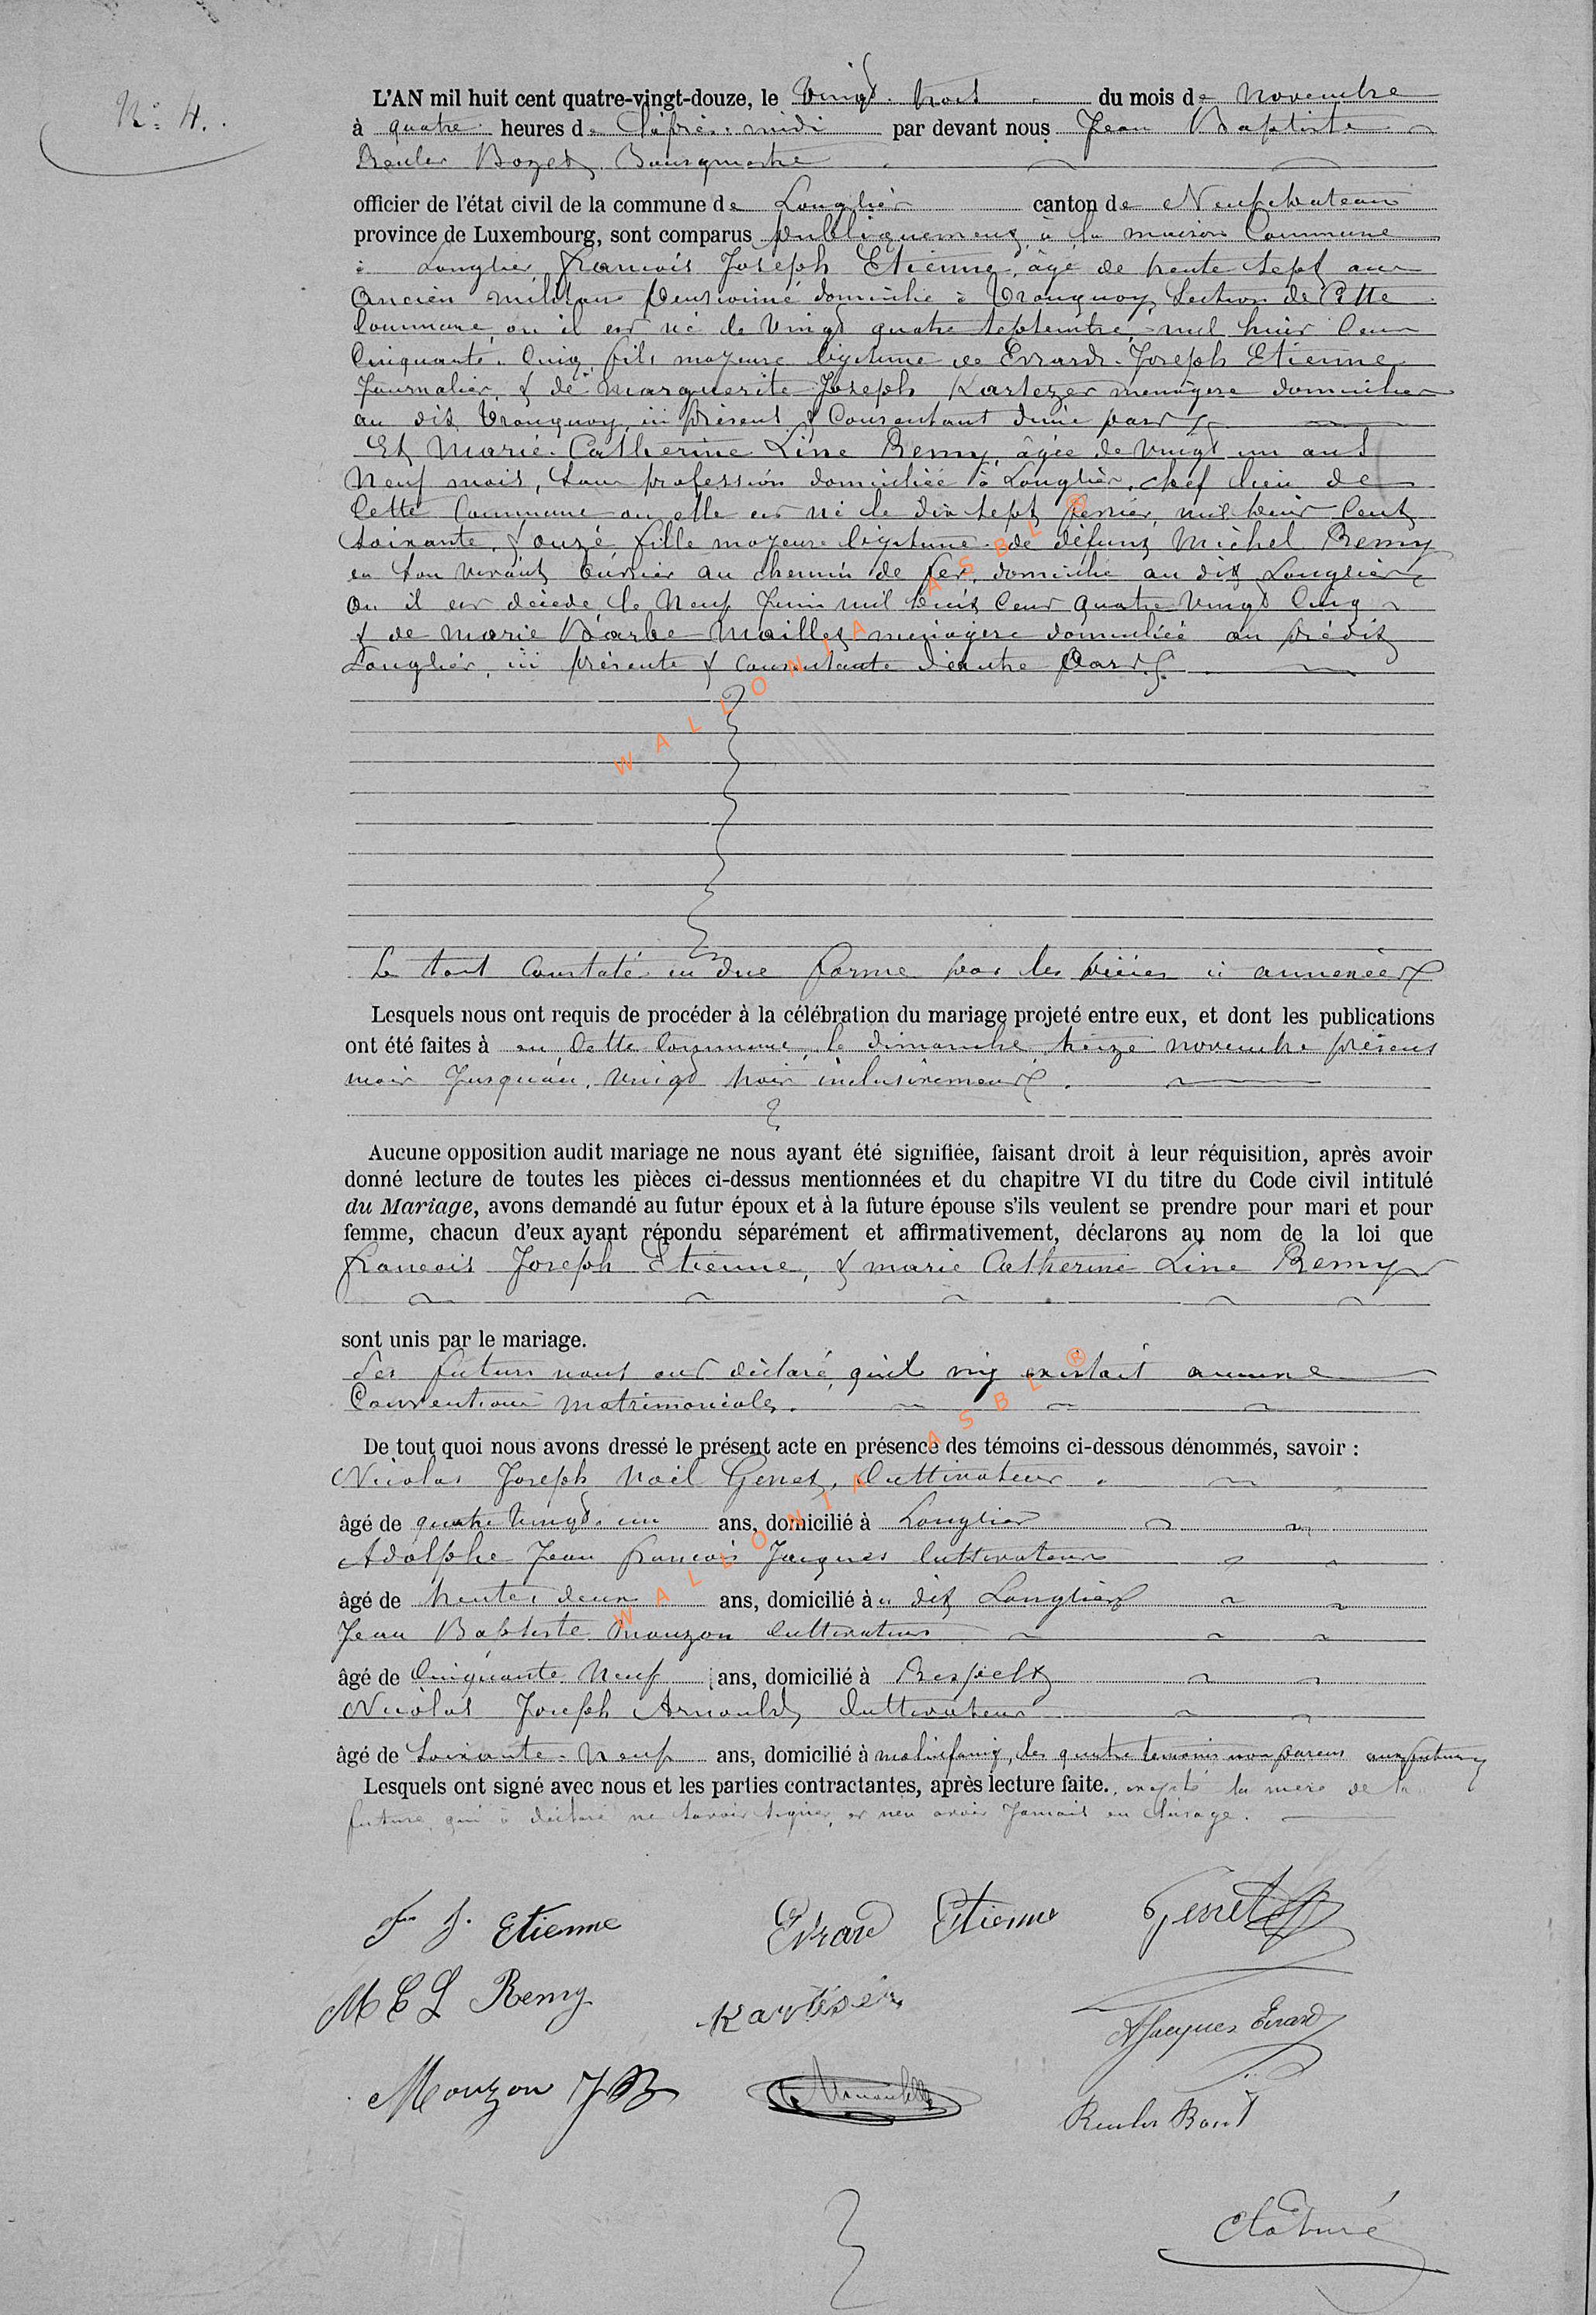 N° 4.
L'AN mil huit cent quatre-vingt-douze, le Vingt-trois du mois de novembre
à quatre heures de l'après-midi par devant nous Jean Baptiste
Reuler Bozet, Bourgmestre
officier de l'état civil de la commune de Longlier canton de Neufchateau
province de Luxembourg, sont comparus publiquement à la maison Commune
à Longlier, François Joseph Etienne, âgé de trente sept ans
ancien militaire pensionné domicilié à Tronquoy, Section de Cette
Commune, ou il est né le Vingt quatre septembre mil huit Cent
Cinquante-Cinq, fils majeur légitime de Evrard-Joseph Etienne
Journalier, & de Marguerite Joseph Kartezer menagère domiciliés
au dit Tronquoy, ici présent & Consentant d'une part
Et Marie-Catherine Line Remy, âgée de Vingt un ans
Neuf mois, sans profession domiciliée à Longlier, chef lieu de
Cette Commune ou elle est né le dix sept février, mil huit Cent
soixante & onze, fille majeure légitime de défunt Michel Remy
en son vivant ouvrier au chemin de fer, domicilié au dit Longlier
Ou il est décédé le Neuf Juin mil huit Cent quatre Vingt Cinq
& de Marie Barbe Maillet menagère domiciliée au prédit
Longlier, ici présente & Consentante d'autre Part.
Le tout Constaté en due forme par les pièces ci annexées
Lesquels nous ont requis de procéder à la célébration du mariage projeté entre eux, et dont les publications
ont été faites à en Cette Commune, le dimanche treize novembre présent
mois Jusqu'au Vingt trois inclusivement.
Aucune opposition audit mariage ne nous ayant été signifiée, faisant droit à leur réquisition, après avoir
donné lecture de toutes les pièces ci-dessus mentionnées et du chapitre VI du titre du Code civil intitulé
du Mariage, avons demandé au futur époux et à la future épouse s'ils veulent se prendre pour mari et pour
femme, chacun d'eux ayant répondu séparément et affirmativement, déclarons au nom de la loi que
François Joseph Etienne, & marie Catherine Line Remy
sont unis par le mariage.
Les futurs nous ont déclaré, qu'il n'y existait aucune
Convention matrimoniale.
De tout quoi nous avons dressé le présent acte en présence des témoins ci-dessous dénommés, savoir :
Nicolas Joseph Noël Genet, Cultivateur
âgé de quatre Vingt-un ans, domicilié à Longlier
Adolphe Jean François Jacques Cultivateur
âgé de trente deux ans, domicilié à u dit Longlier
Jean Baptiste Mouzon Cultivateur
âgé de Cinquante Neuf ans, domicilié à Respelt
Nicolas Joseph Arnould, Cultivateur
âgé de Soixante-Neuf ans, domicilié à molinfaing, les quatre temoins non parens aux futurs
Lesquels ont signé avec nous et les parties contractantes, après lecture faite., excepté la mère de la
future, qui à déclaré ne savoir signer, et n'en avoir Jamais eu l'usage.
F. J. Etienne Evrard Etienne Genet
M C L Remy Karteser AJacques Evrard
Mouzon JB Arnould Reuler Bozet
Cloturé
WALLONIA ASBL ®
WALLONIA ASBL ®